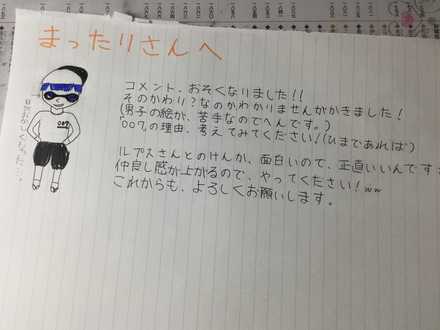 まったりさんへ
コメント、おそくなりました!!
そのかわり?なのかわかりませんがかきました!
(男子の絵が、苦手なのでへんです。)
「007」の理由、考えてみてください!(ひまであれば)
ルプスさんとのけんか、面白いので、正直いいんです
仲良し感が上がるので、やってください!ww
これからも、よろしくお願いします。
007